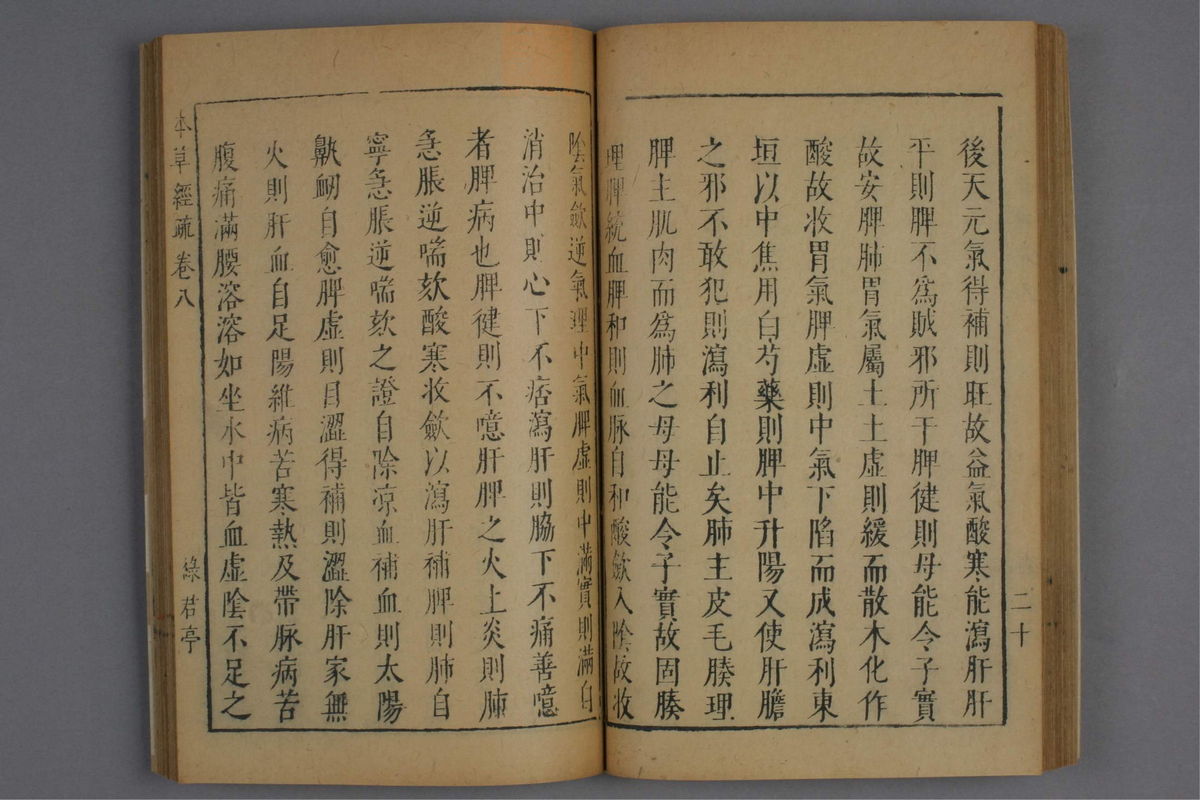 二十
後天元氣得補則旺故益氣酸寒能瀉肝肝
平則脾不爲賊邪所干脾徤則母能令子實
故安脾肺胃氣屬土土虛則緩而散木化作
酸故收胃氣脾虛則中氣下陷而成瀉利東
垣以中焦用白芍藥則脾中升陽又使肝膽
之邪不敢犯則瀉利自止矣肺主皮毛腠理
脾主肌肉而爲肺之母母能令子實故固腠
理脾統血脾和則血脉自和酸斂入陰故收
陰氣斂逆氣理中氣脾虛則中滿實則滿自
消治中則心下不痞瀉肝則脇下不痛善噫
者脾病也脾徤則不噫肝脾之火上炎則肺
急脹逆喘欬酸寒收斂以瀉肝補脾則肺自
寧急脹逆喘欬之證自除凉血補血則太陽
鼽衂自愈脾虛則目澀得補則澀除肝家無
火則肝血自足陽維病苦寒熱及帶脉病苦
腹痛滿腰溶溶如坐水中皆血虛陰不足之
本草經疏 卷八
綠君亭